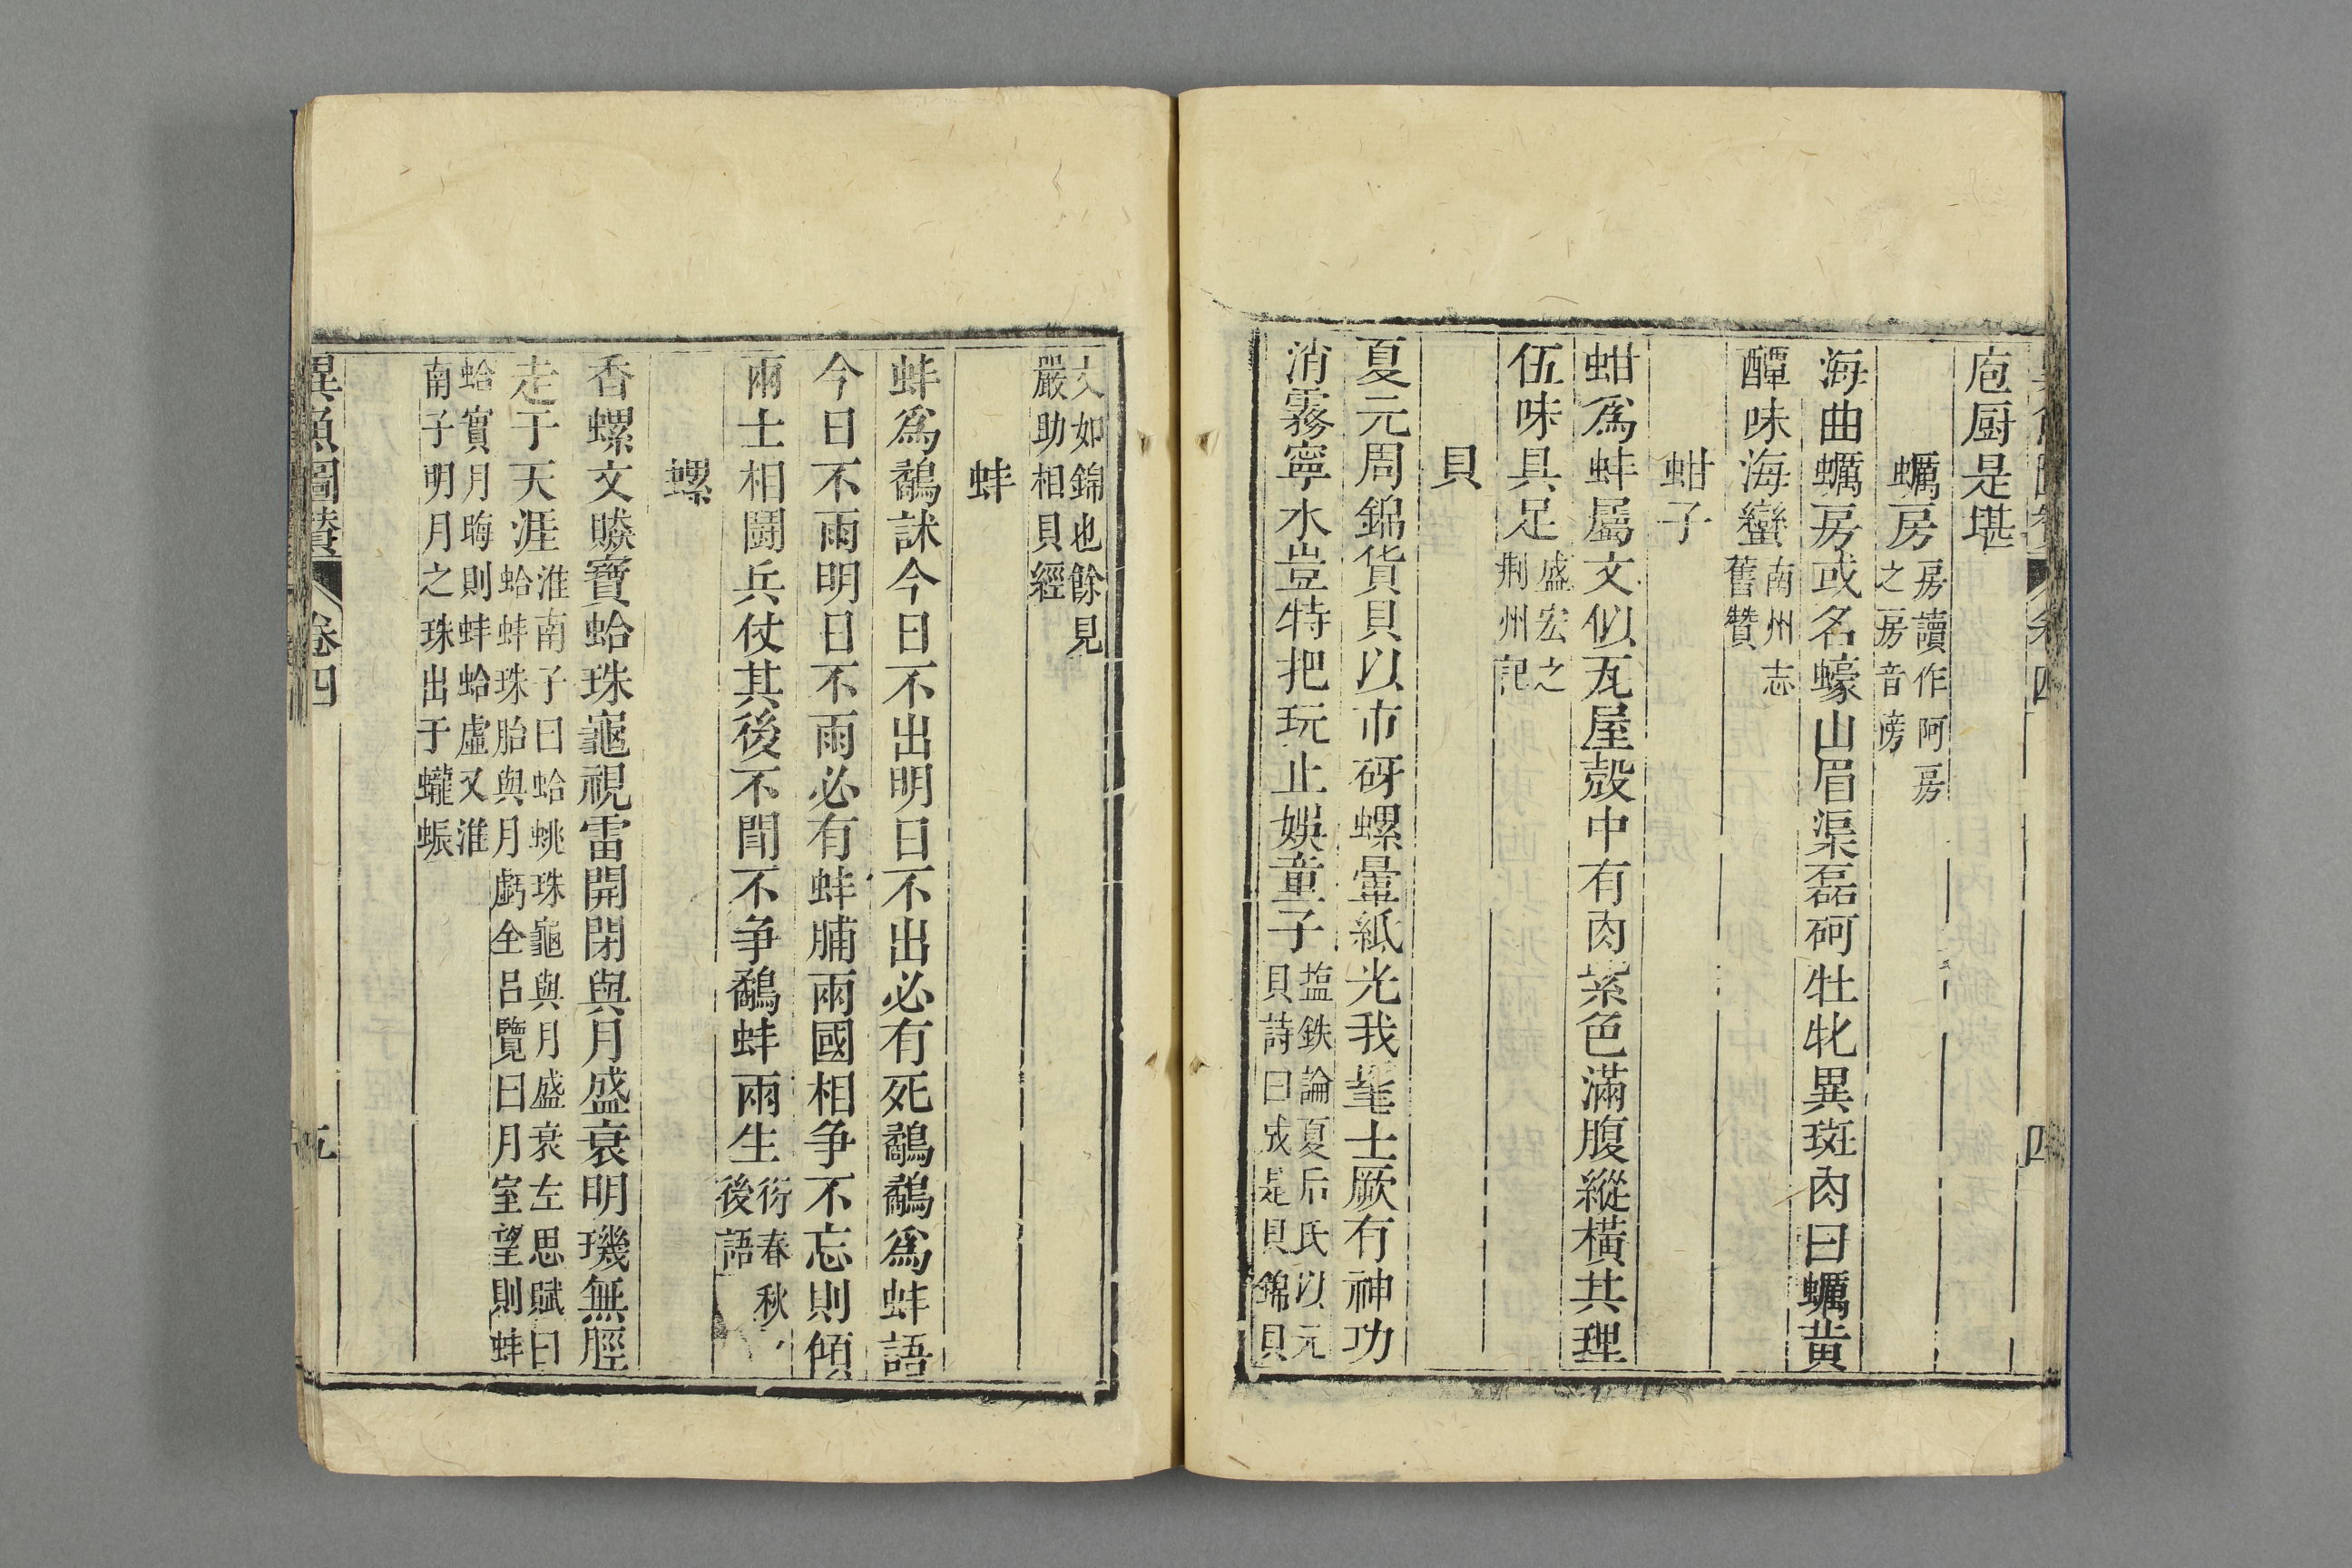 庖厨是堪
蠣房
房讀作阿房
之房音滂
海曲蠣房或名蠔山眉渠磊砢牡牝異斑肉曰蠣黃
醰味海蠻
南州志
舊贊
蚶子
蚶爲蚌屬文似瓦屋殼中有肉紫色滿腹縱橫共理
伍味具足
盛宏之
荆州記
貝
夏元周錦貨貝以市砑螺暈紙光我髦士厥有神功
消霧寧水豈特把玩止娛童子
塩鉄論夏后氏以元
貝詩曰成是貝錦貝
文如錦也餘見
嚴助相貝經
蚌
蚌爲鷸訹今日不出明日不出必有死鷸鷸爲蚌語
今日不雨明日不雨必有蚌脯兩國相争不忘則傾
兩士相鬪兵仗其後不聞不争鷸蚌兩生
衍春秋
後語
螺
香螺文賕寶蛤珠龜視雷開閉與月盛衰明璣無脛
走于天涯
淮南子曰蛤蛖珠龜與月盛衰左思賦曰
蛤蚌珠胎與月虧全呂覽曰月室望則蚌
蛤實月晦則蚌蛤虛又淮
南子明月之珠出于蠬蜄
異魚圖贊
卷四
五
卷四
四